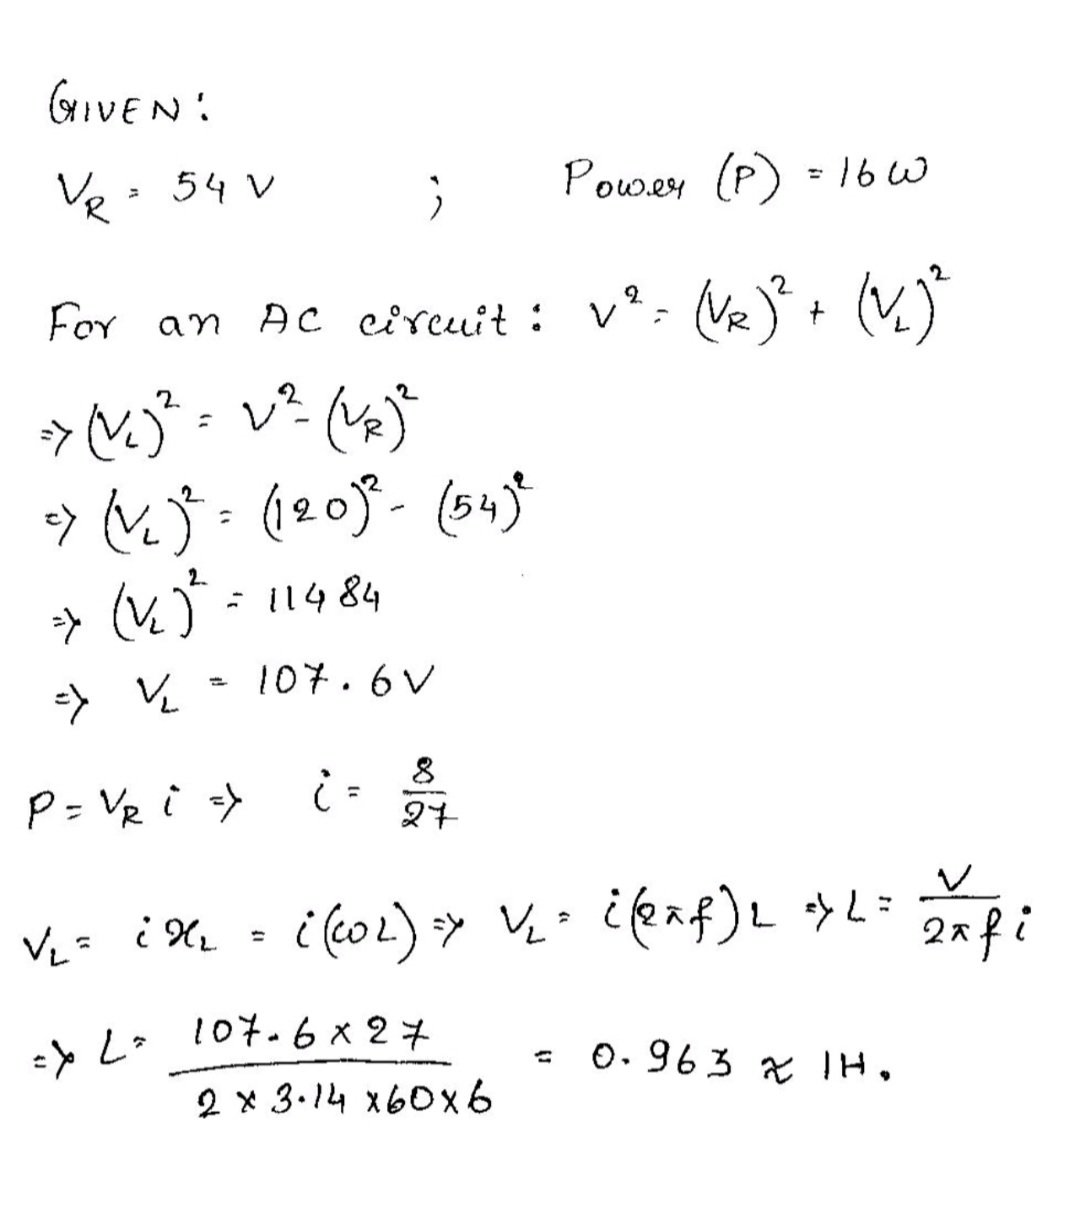 GIVEN:
V_R = 54 V ; Power (P) = 16 W
For an AC circuit : V² = (V_R)² + (V_L)²
=> (V_L)² = V² - (V_R)²
=> (V_L)² = (120)² - (54)²
=> (V_L)² = 11484
=> V_L = 107.6 V
P = V_R i => i = 8/27
V_L = i x_L = i(ωL) => V_L = i(2πf)L => L = V/2πfi
=> L = 107.6 x 27 / 2 x 3.14 x 60 x 6 = 0.963 ≈ 1H.